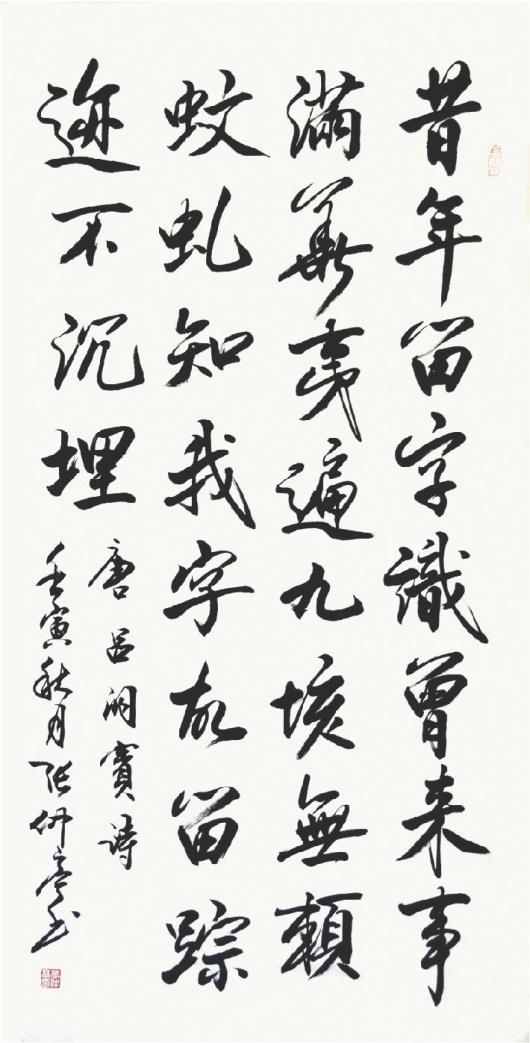 昔年留字識曾来事
滿華夷遍九垓無賴
蚊虬知我字故留踪
迹不沉埋
唐吕洞賓詩
壬寅秋月张仲亭书